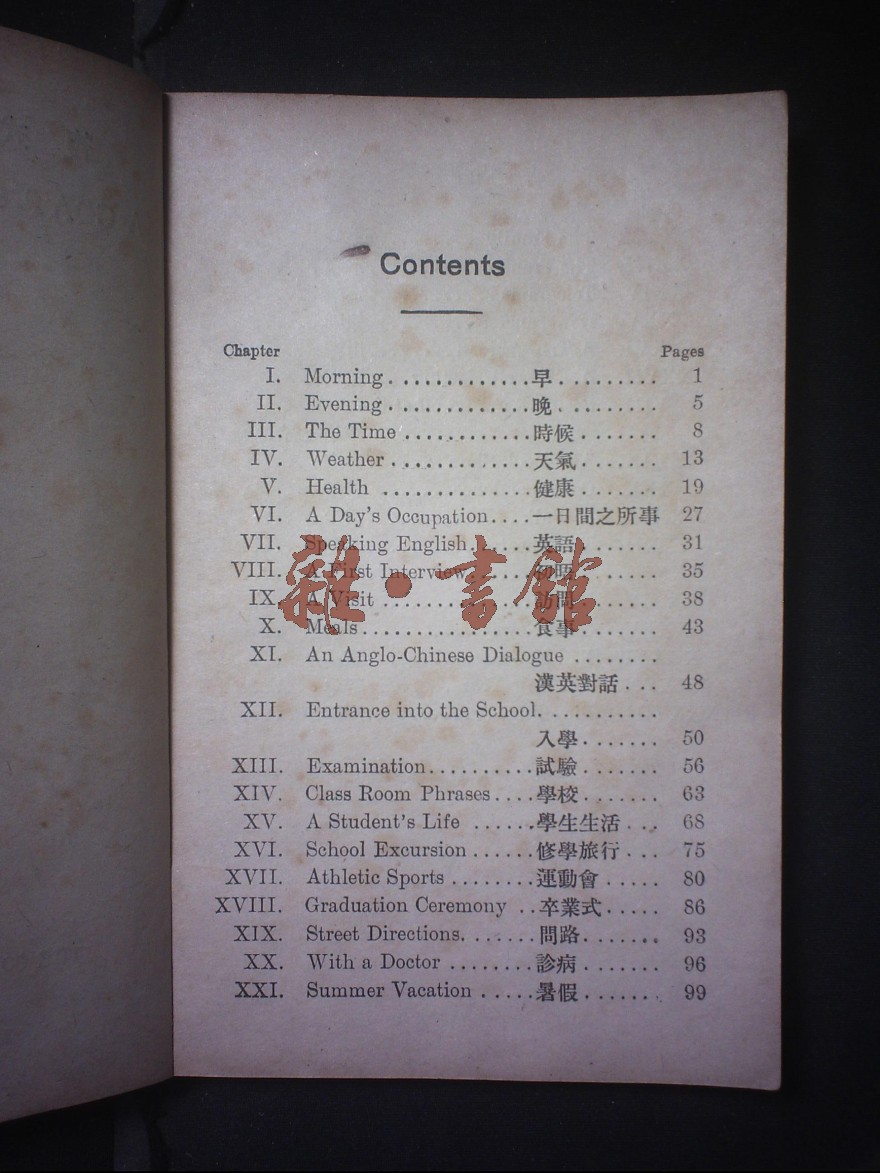 Contents
Chapter Pages
I. Morning.............早......... 1
II. Evening.............晩......... 5
III. The Time............時候....... 8
IV. Weather............天氣....... 13
V. Health............健康....... 19
VI. A Day's Occupation....一日間之所事 27
VII. Speaking English......英語....... 31
VIII. A First Interview 35
IX. A Visit............訪問....... 38
X. Meals..............食事....... 43
XI. An Anglo-Chinese Dialogue ........
漢英對話... 48
XII. Entrance into the School...........
入學....... 50
XIII. Examination..........試驗....... 56
XIV. Class Room Phrases....學校....... 63
XV. A Student's Life ......學生生活... 68
XVI. School Excursion ......修學旅行... 75
XVII. Athletic Sports ........運動會..... 80
XVIII. Graduation Ceremony ..卒業式..... 86
XIX. Street Directions.......問路....... 93
XX. With a Doctor ........診病....... 96
XXI. Summer Vacation .....暑假....... 99
雜·書館